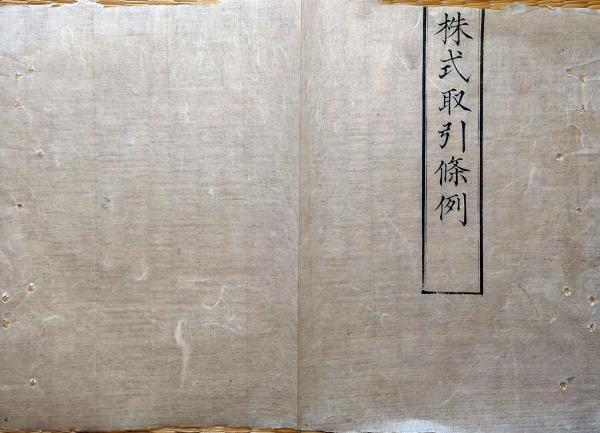 株式取引條例